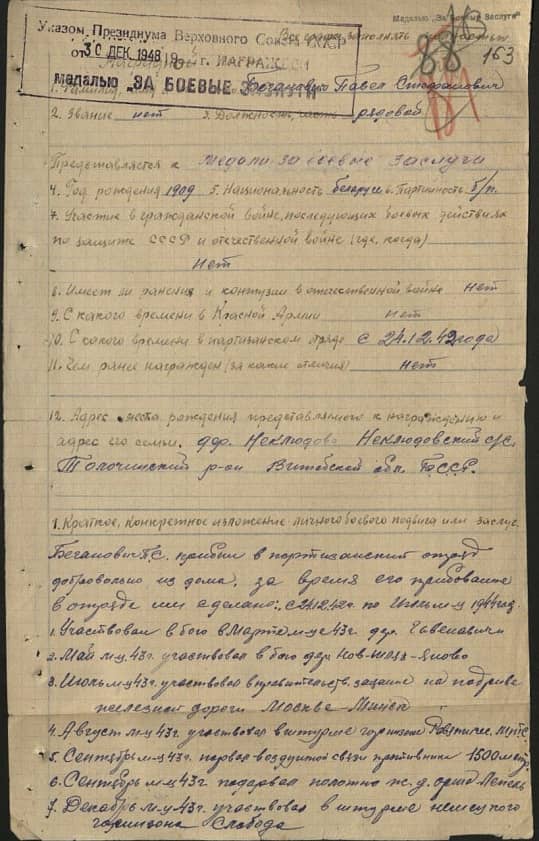 Медалью „За Боевые Заслуги"
Указом Президиума Верховного Совета СССР
Все графы заполнять
от 30 ДЕК. 1948 г. НАГРАЖДЕН
медалью „ЗА БОЕВЫЕ ЗАСЛУГИ"
88
163
Наградной
1. Фамилия, Беганович Павел Стефанович
2. Звание нет 3. Должность, часть рядовой
Представляется к медали за боевые заслуги
4. Год рождения 1909 5. Национальность белорус 6. Партийность б/п.
7. Участие в гражданской войне, последующих боевых действиях
по защите СССР и отечественной войне (где, когда)
Нет
8. Имеет ли ранения и контузии в отечественной войне нет
9. С какого времени в Красной Армии нет
10. С какого времени в партизанском отряде с 24.12.42 года
11. Чем ранее награжден (за какие отличия) нет
12. Адрес места рождения представляемого к награждению и
адрес его семьи. дер. Неклюдово Неклюдовский с/с,
Толочинский р-он Витебской обл. БССР.
1. Краткое, конкретное изложение личного боевого подвига или заслуг.
Беганович П.С. прибыл в партизанский отряд
добровольно из дома, за время его прибование
в отряде им сделано: с 24.12.42г. по Июль м-ц 1944 год.
1. Участвовал в бою в Марте м-це 43г. дер.
2. Май м-ц 43г. участвовал в бою дер.
3. Июль м-ц 43г. участвовал в задание на подриве
железной дороги Москва-Минск
4. Август м-ц 43г. участвовал в штурме гарнизона
5. Сентябрь м-ц 43г. порвал воздушной связи противника 1500 метр.
6. Сентябрь м-ц 43г. подарвал полотно ж.д. Орша Лепель
7. Декабрь м-ц 43г. участвовал в штурме немецкого
гарнизона Слобода